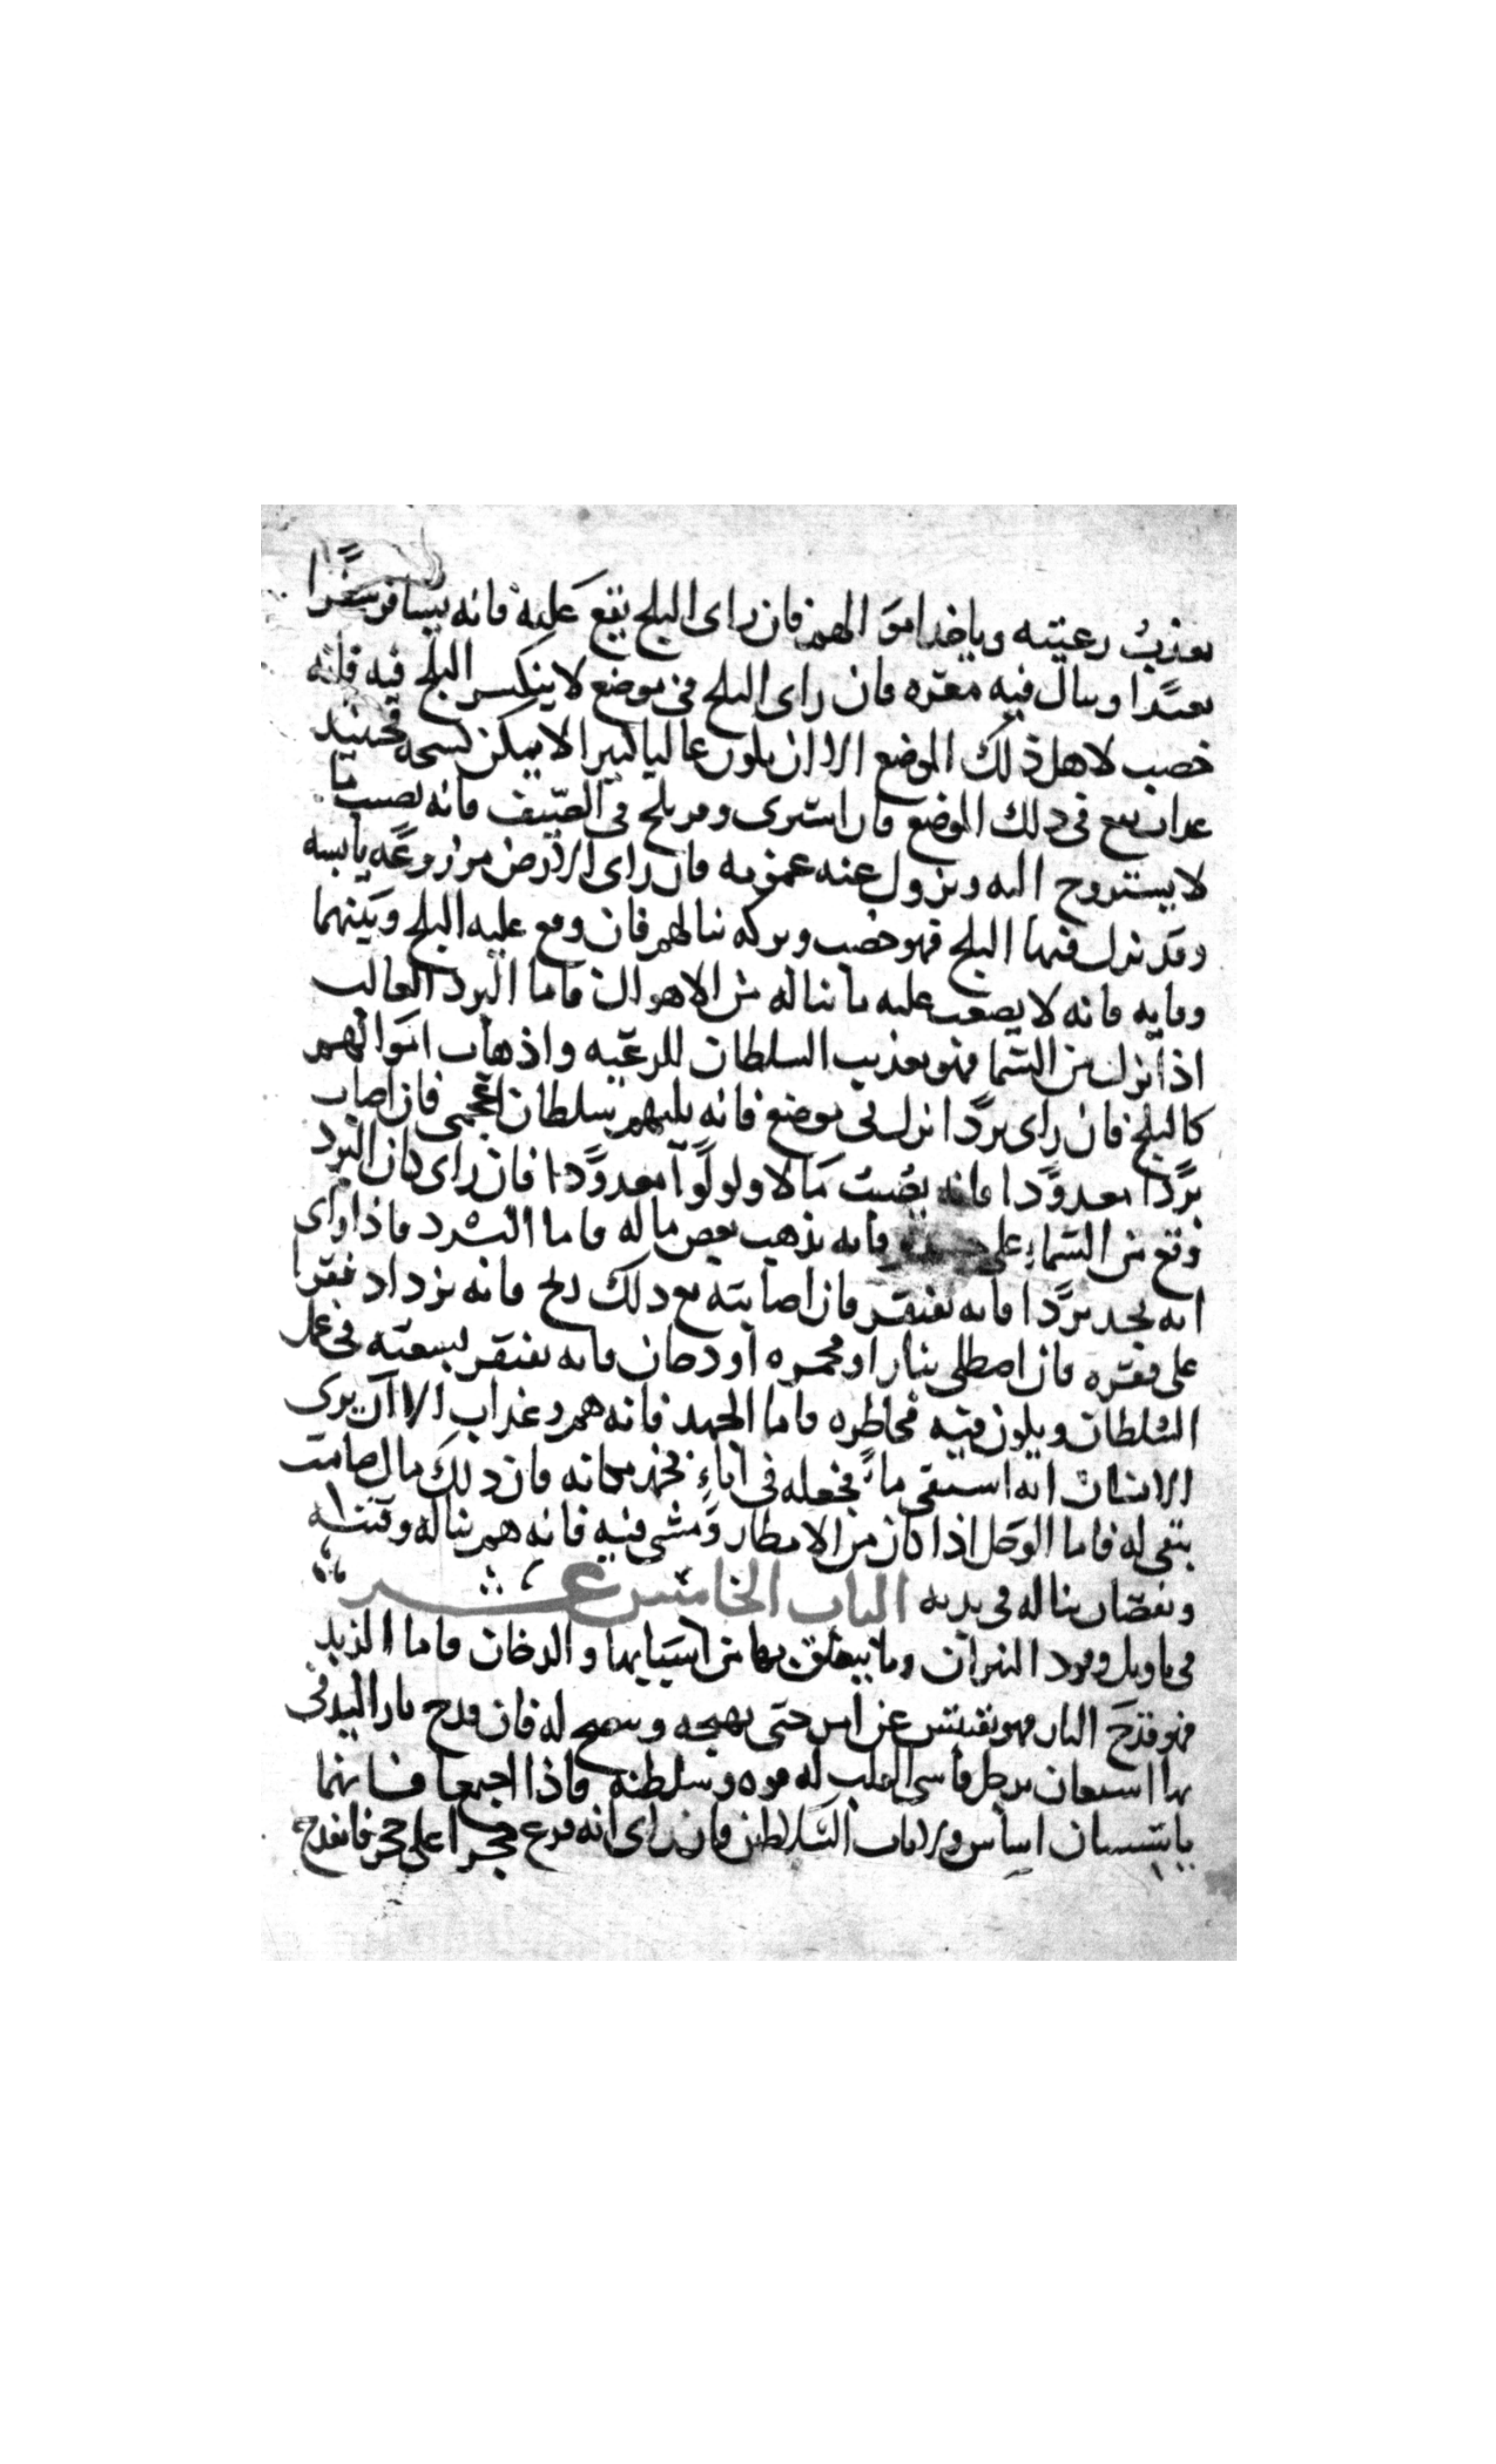 يعذب رعيته وياخذ اموالهم فان راى الثلج يقع عليه فانه يسافر سفرا
بعيدا وينال فيه معره فان راى الثلج في موضع لا ينكسر الثلج فيه فانه
خصب لاهل ذلك الموضع الا ان يكون غالبا كثيرا لا يمكن كسحه فحينيذ
عذاب يقع في ذلك الموضع فان اشترى وقر ثلج في الصيف فانه يصيب ما
لا يستروح اليه ويزول عنه غمز به فان راى الارض مزروعه يابسه
وقد نزل فيها الثلج فهو خصب وبركه ينالهم فان وقع عليه الثلج وبينهما
وقايه فانه لا يصعب عليه ما يناله من الاهوال فاما البرد الغالب
اذا نزل من السما فهو يعذيب السلطان للرعيه واذهاب اموالهم
كالثلج فان راى بردا نزل في موضع فانه يليهم سلطان اعجمي فان اصاب
بردا معدودا فانه يصيب مالا ولولوا معدودا فان راى كان البرد
وقع من السماء على فانه يذهب بعض ماله فاما البرد فاذا راى
انه يجد بردا فانه يفتقر فان اصابته مع ذلك ريح فانه يزداد فقرا
على فقره فان اصطلى بنار او مجمره او دخان فانه يفتقر بسعيه في عمل
السلطان ويكون فيه مخاطره فاما الجمد فانه هم وعذاب الا ان يرى
الانسان انه استقى ماء فجعله في اناء فجمد مكانه فان ذلك مال صامت
يبقى له فاما الوحل اذا كان من الامطار ومشى فيه فانه هم يناله وفتنه
ونقصان يناله في بدنه الباب الخامس عشر
في تاويل وقود النيران وما يتعلق بها من اسبابها والدخان فاما الزند
فهو قدح النار فهو تفتيش عن امر حتى يهيجه ويسمح له فان قدح نارا ليدفى
بها استعان برجل قاسي القلب له قوه وسلطنه فاذا اجتمعا فانهما
ياسسان اساس ولايات السلاطين فان راى انه قرع حجرا على حجر فانقدح